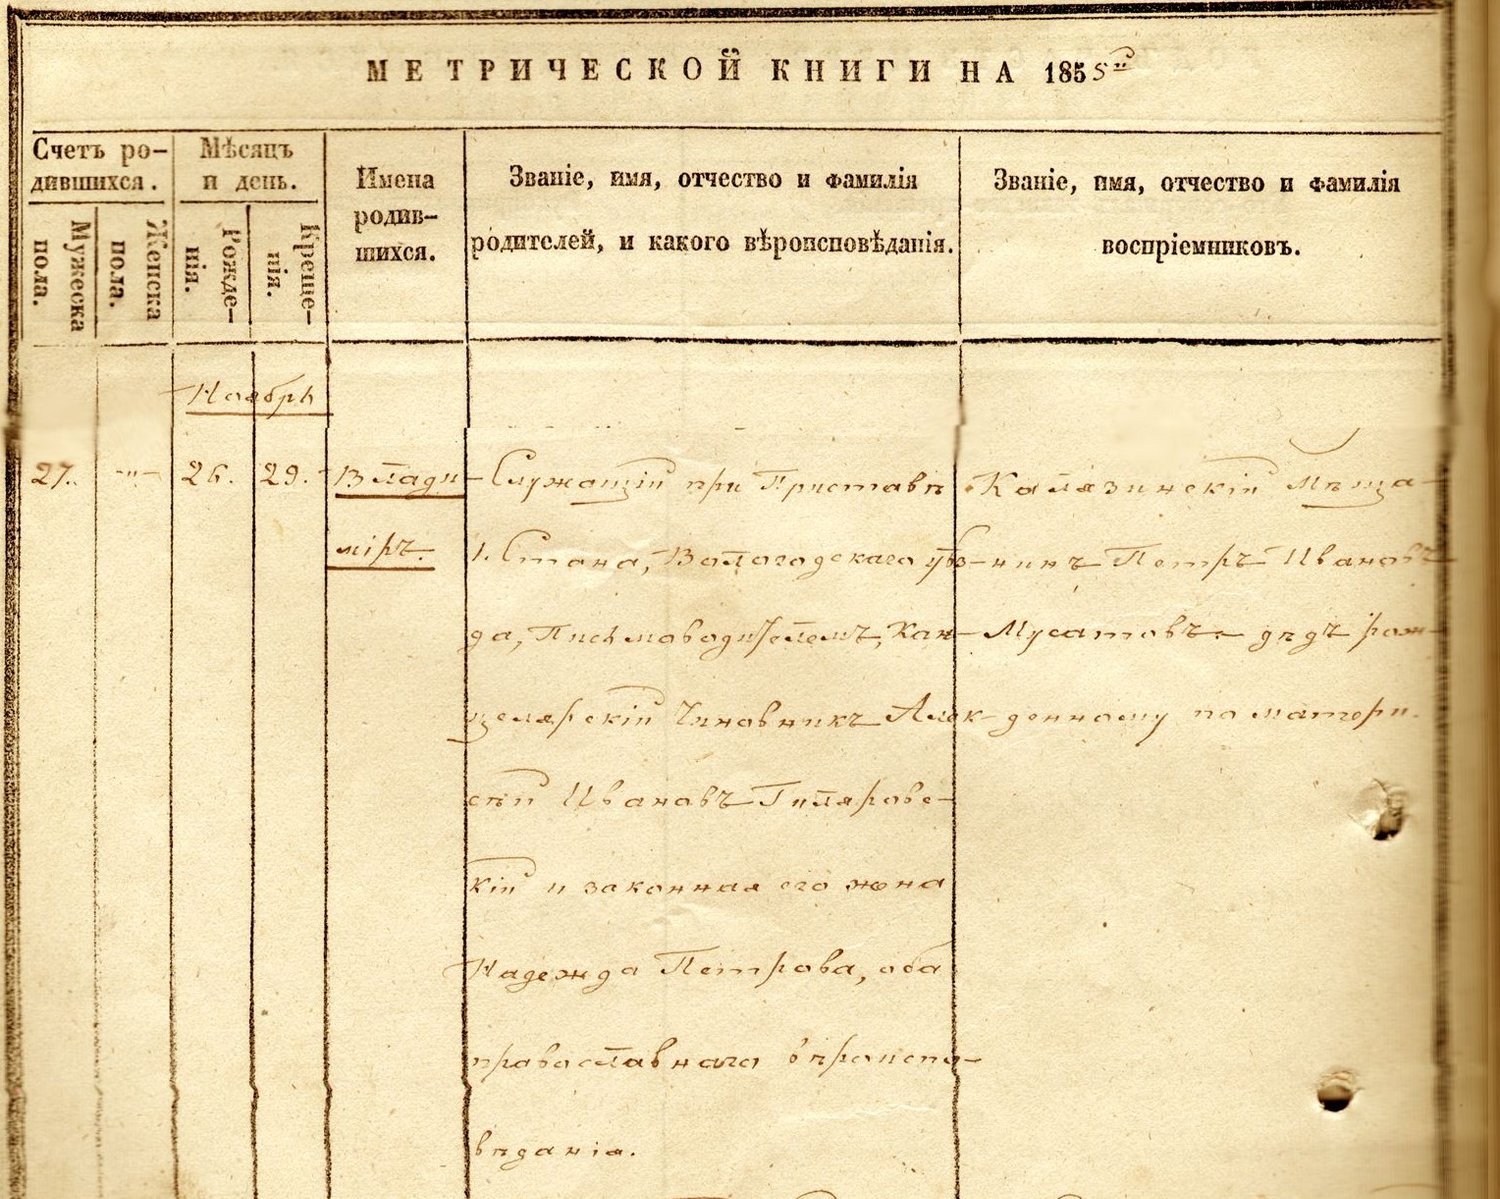 МЕТРИЧЕСКОЙ КНИГИ НА 1855й
Счетъ ро-
дившихся.
Мужеска
пола.
Женска
пола.
Мѣсяцъ
и день.
Рожде-
нія.
Креще-
нія.
Имена
родив-
шихся.
Званіе, имя, отчество и фамилія
родителей, и какого вѣроисповѣданія.
Званіе, имя, отчество и фамилія
воспріемниковъ.
Ноябрь
27. -"- 26. 29.
Влади-
міръ.
Служащій при Приставѣ
1. Стана, Вологодскаго уѣз-
да, Письмоводителемъ, Кан-
целярскій Чиновникъ Алек-
сѣй Ивановъ Гиляровс-
кій и законная его жена
Надежда Петрова, оба
православнаго вѣроиспо-
вѣданія.
Калязинскій Мѣща-
нинъ Петръ Ивановъ
Мусатовъ - дѣдъ рож-
денному по матери.